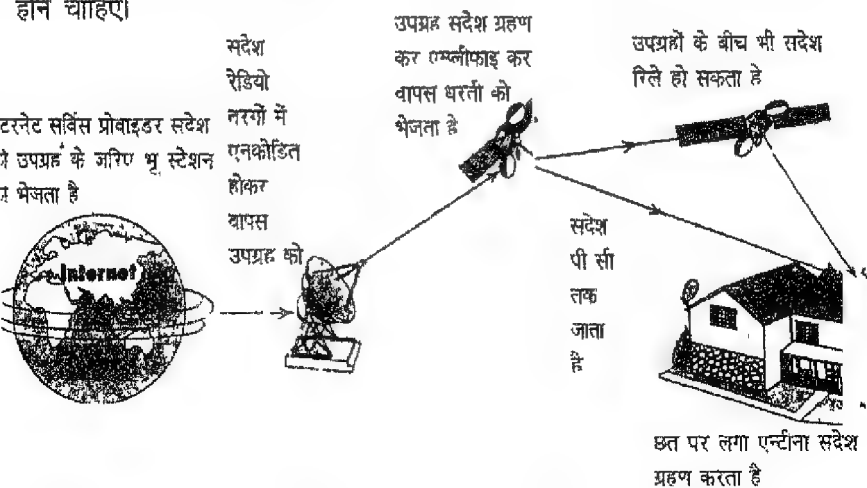 होने चाहिए।
टरनेट सर्विस प्रोवाइडर सदेश
उपग्रह के जरिए भू स्टेशन
भेजता है
Internet
सदेश
रेडियो
तरगों में
एनकोडित
होकर
वापस
उपग्रह को
उपग्रह सदेश ग्रहण
कर एम्प्लीफाइ कर
वापस धरती को
भेजता है
उपग्रहों के बीच भी सदेश
रिले हो सकता है
सदेश
पी सी
तक
जाता
है
छत पर लगा एन्टीना सदेश
ग्रहण करता है